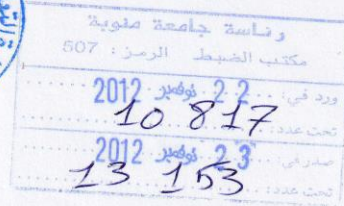 رئاسة جامعة منوبة
مكتب الضبط الرمز : 507
ورد في : 22 نوفمبر 2012
تحت عدد : 10 817
صدر في : 23 نوفمبر 2012
تحت عدد : 13 153